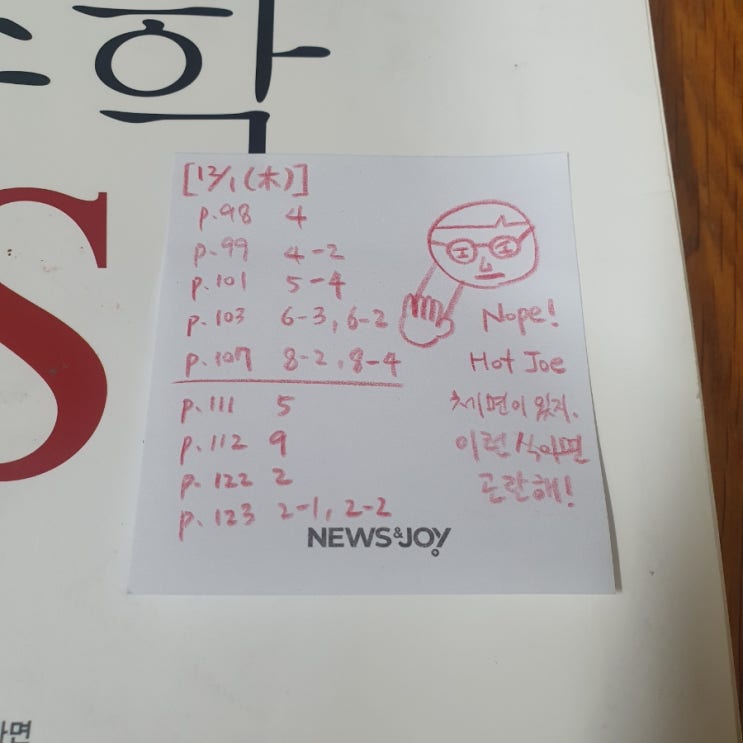 수학
S
[12/1 (木)]
p.98 4
p.99 4-2
p.101 5-4
p.103 6-3, 6-2
p.107 8-2, 8-4
p.111 5
p.112 9
p.122 2
p.123 2-1, 2-2
Nope!
Hot Joe
체면이 있지.
이런 식이면
곤란해!
NEWS&JOY
라면